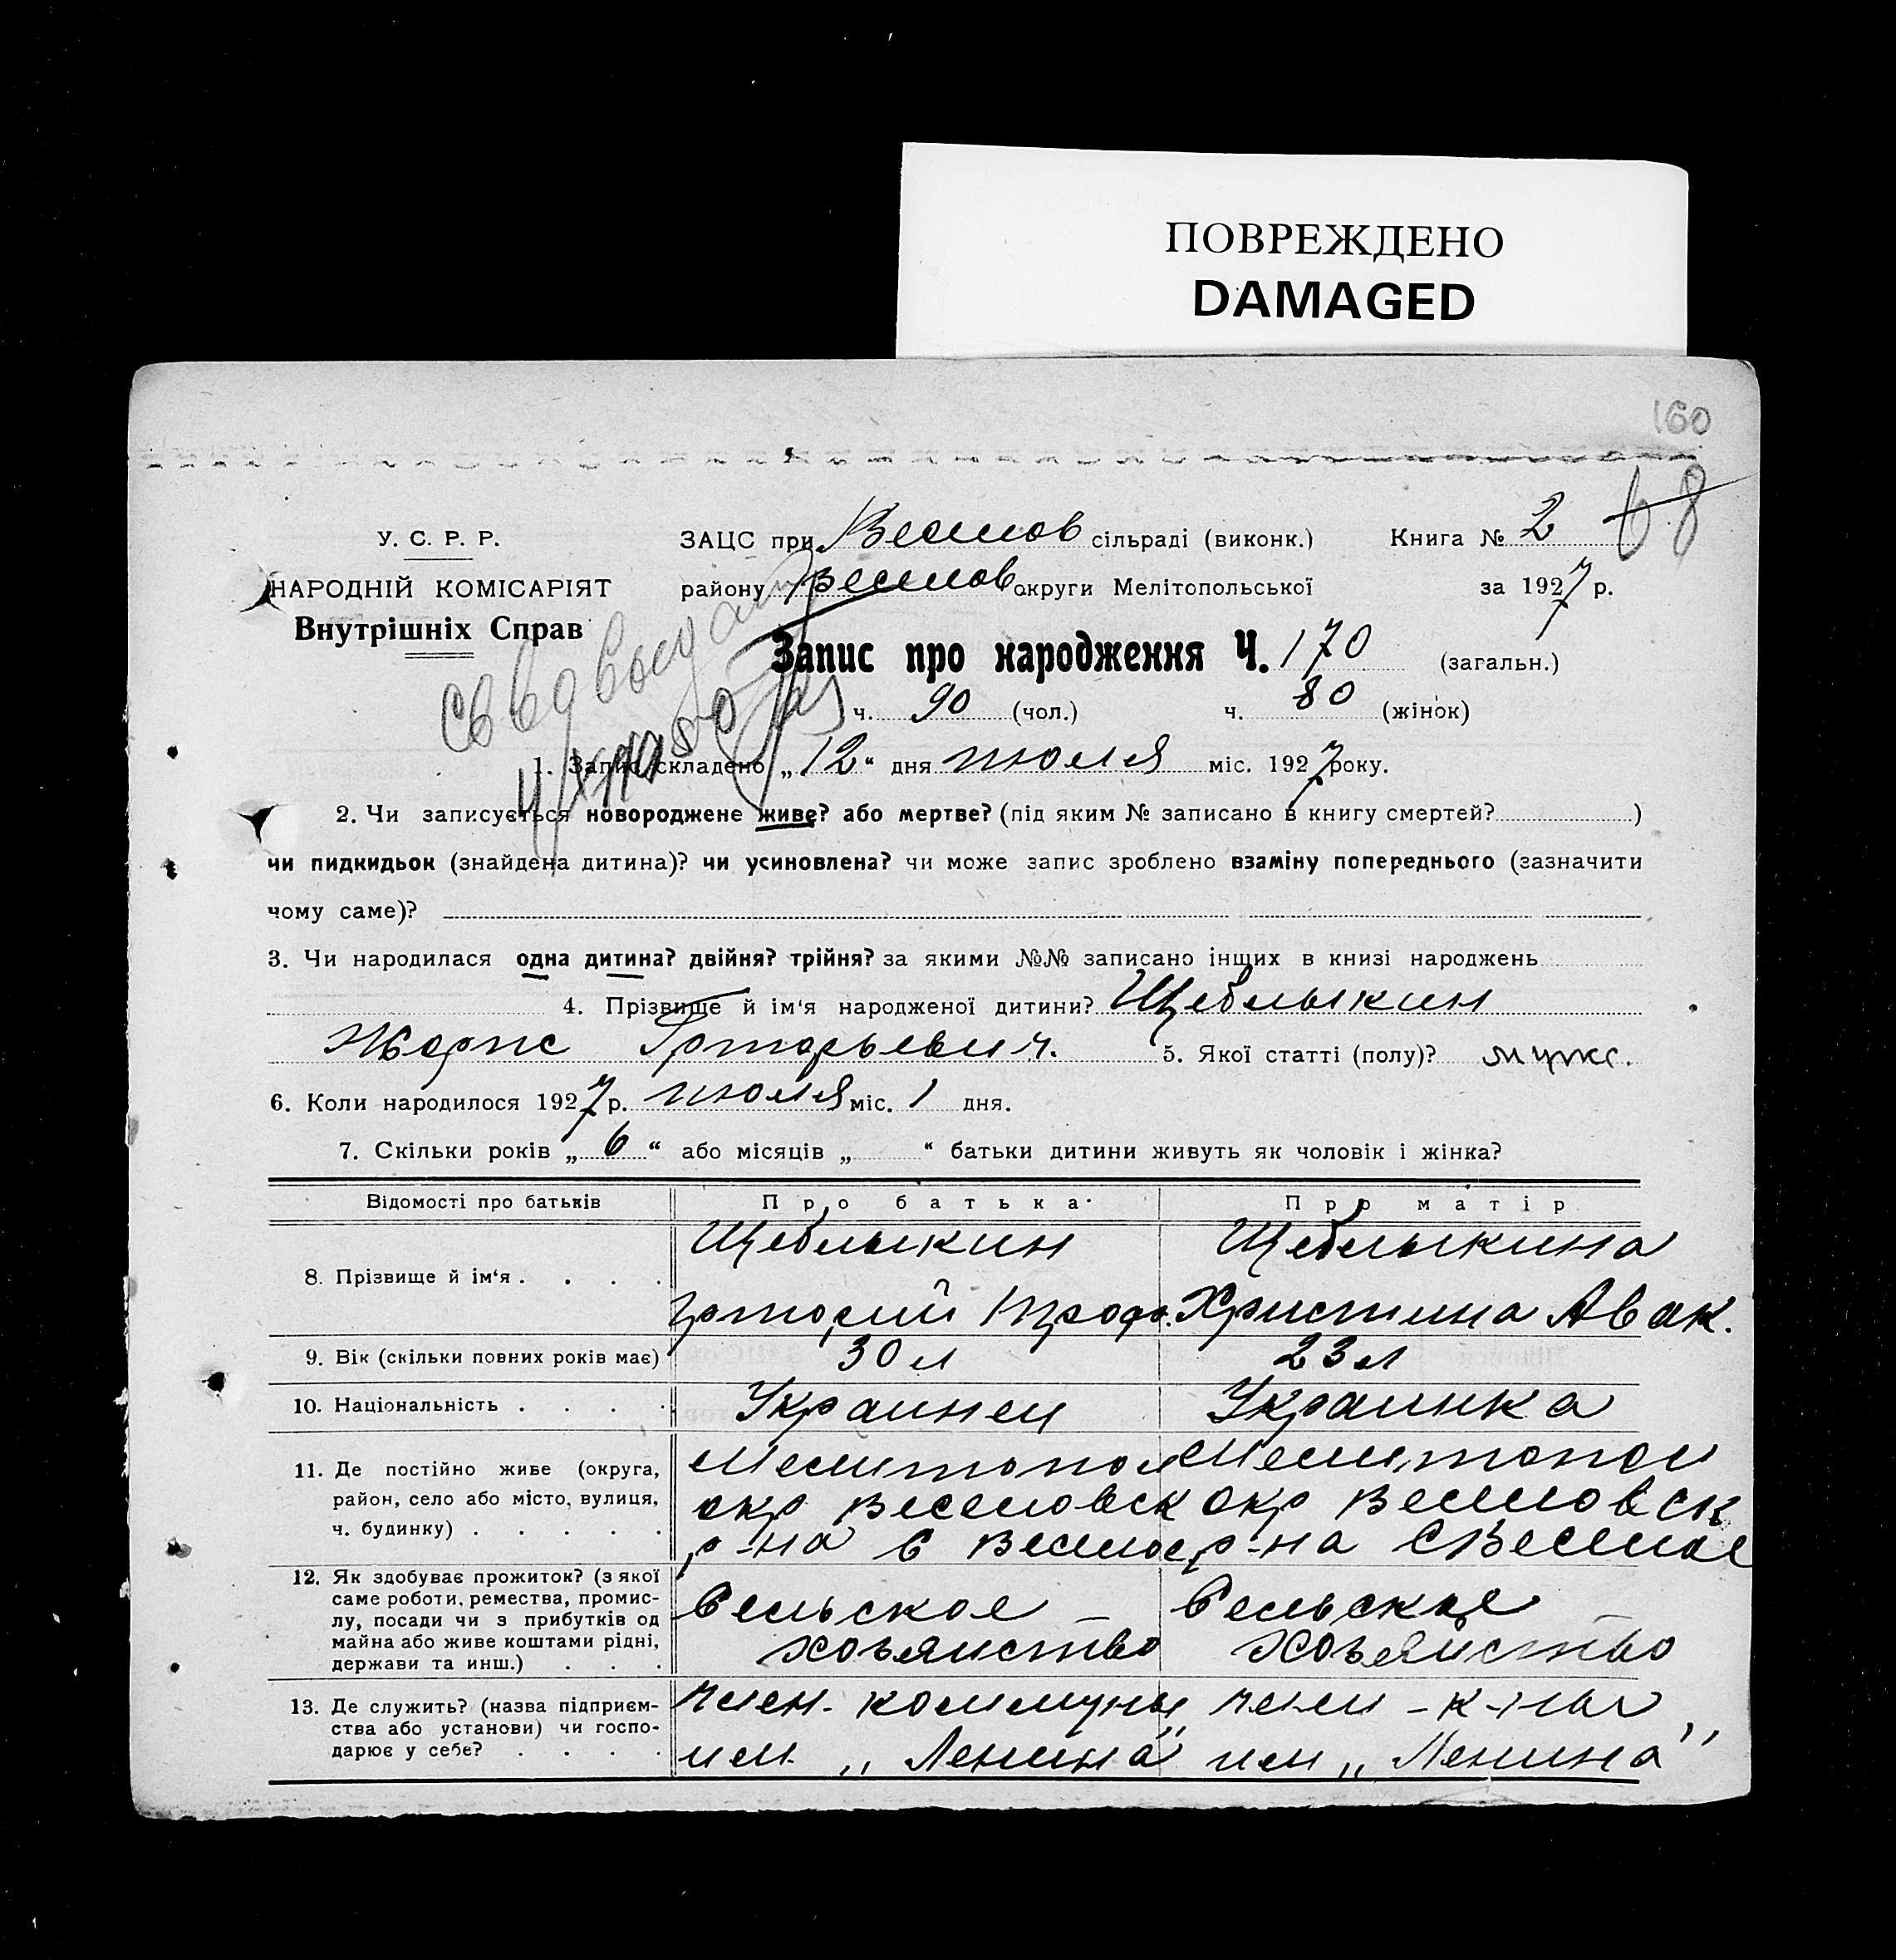 ПОВРЕЖДЕНО
DAMAGED
160
68
У. С. Р. Р.
НАРОДНІЙ КОМІСАРІЯТ
Внутрішніх Справ
ЗАЦС при Веселов сільраді (виконк.) Книга № 2
району Веселов округи Мелітопольської за 1927 р.
Запис про народження Ч. 170 (загальн.)
ч. 90 (чол.) ч. 80 (жінок)
1. Запис складено „12“ дня июля міс. 1927 року.
2. Чи записується новороджене живе? або мертве? (під яким № записано в книгу смертей? )
чи пидкидьок (знайдена дитина)? чи усиновлена? чи може запис зроблено взаміну попереднього (зазначити
чому саме)?
3. Чи народилася одна дитина? двійня? трійня? за якими №№ записано інщих в книзі народжень
4. Прізвище й ім‘я народженої дитини? Щеблыкин
Жорис Григорьевич. 5. Якої статті (полу)? мужс.
6. Коли народилося 1927 р. июля міс. 1 дня.
7. Скільки років „6“ або місяців „ “ батьки дитини живуть як чоловік і жінка?
Відомості про батьків Про батька Про матір
8. Прізвище й ім‘я . . . . Щеблыкин Щеблыкина
Григорий Троф. Христина Авак.
9. Вік (скільки повних років має) 30 л 23 л
10. Національність . . . . Украинец Украинка
11. Де постійно живе (округа, район, село або місто, вулиця, ч. будинку) . . . . .
Мелитопол Мелитопол
окр Веселовск окр Веселовск
р-на с Веселое р-на с Веселое
12. Як здобуває прожиток? (з якої саме роботи, ремества, промислу, посади чи з прибутків од майна або живе коштами рідні, держави та инш.) . . .
Сельское – Сельское –
хозяйство хозяйство
13. Де служить? (назва підприємства або установи) чи господарює у себе? . . . .
член. коммуны член - к-ны
им. „Ленина“ им „Ленина“